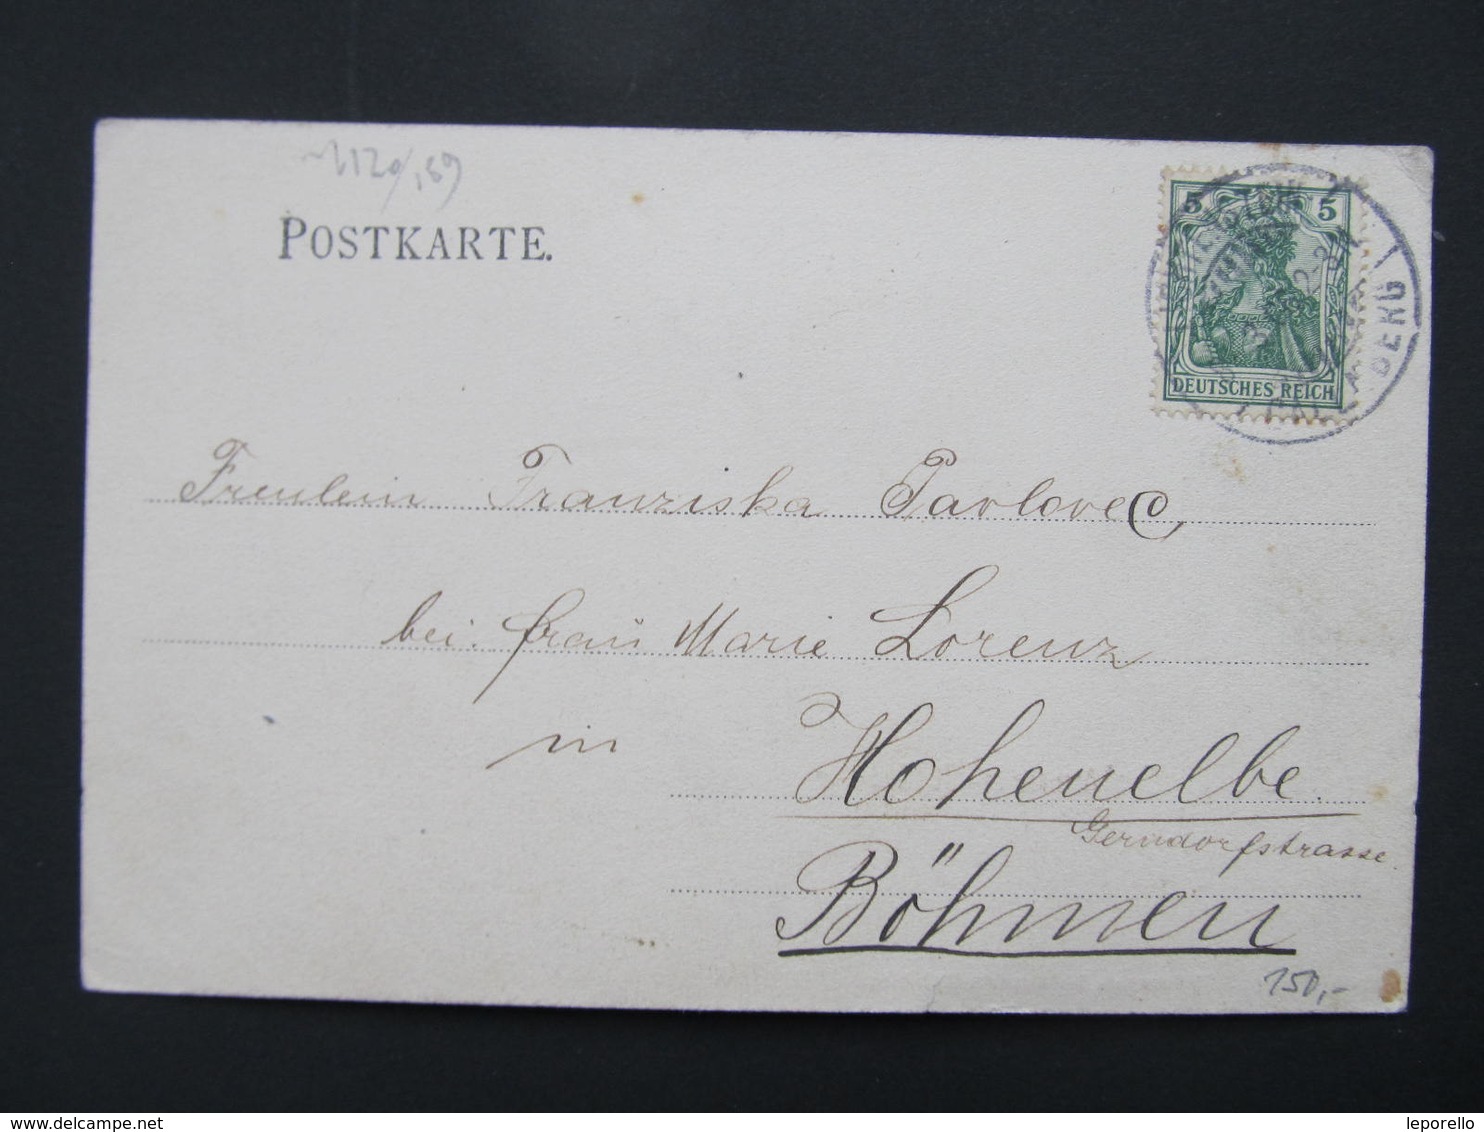 POSTKARTE.
5 5
DEUTSCHES REICH
Freulein Franziska Pavlovec
bei frau Marie Lorenz
in Hohenelbe
Gerndorfstrasse
Böhmen
150,-
delcampe.net
leporello